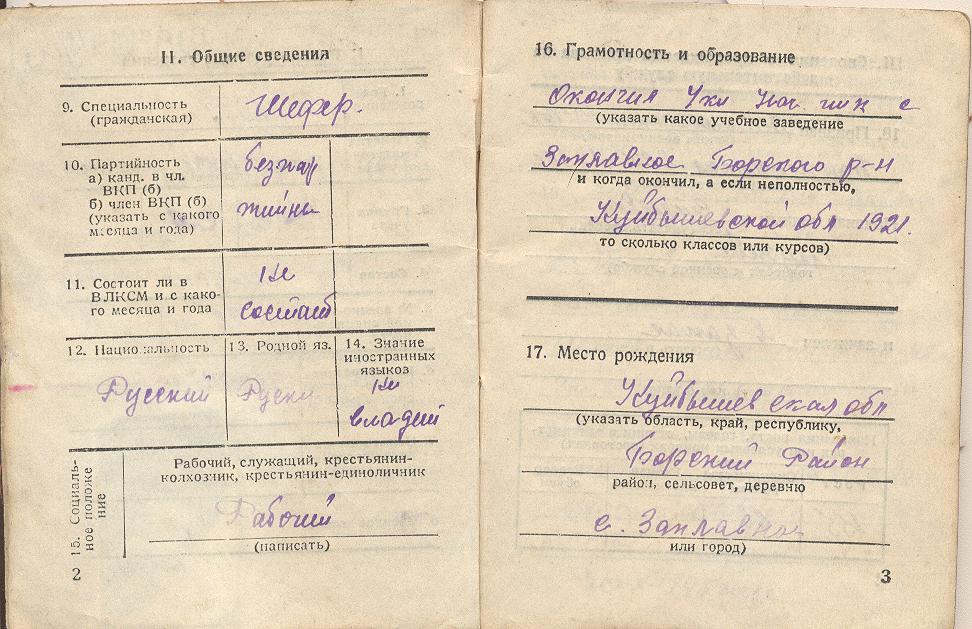 II. Общие сведения
9. Специальность
(гражданская)
Шефер.
10. Партийность
а) канд. в чл.
ВКП (б)
б) член ВКП (б)
(указать с какого
месяца и года)
безпар
тийны
11. Состоит ли в
ВЛКСМ и с како-
го месяца и года
не
состаит
12. Национальность
Русский
13. Родной яз.
Руски
14. Знание
иностранных
языков
не
владеит
15. Социаль-
ное положе-
ние
Рабочий, служащий, крестьянин-
колхозник, крестьянин-единоличник
Рабочий
(написать)
2
16. Грамотность и образование
Окончил с
(указать какое учебное заведение
Заплавное Борского р-н
и когда окончил, а если неполностью,
Куйбышевской обл 1921.
то сколько классов или курсов)
17. Место рождения
Куйбышевская обл
(указать область, край, республику,
Борский Район
район, сельсовет, деревню
с. Заплавное
или город)
3